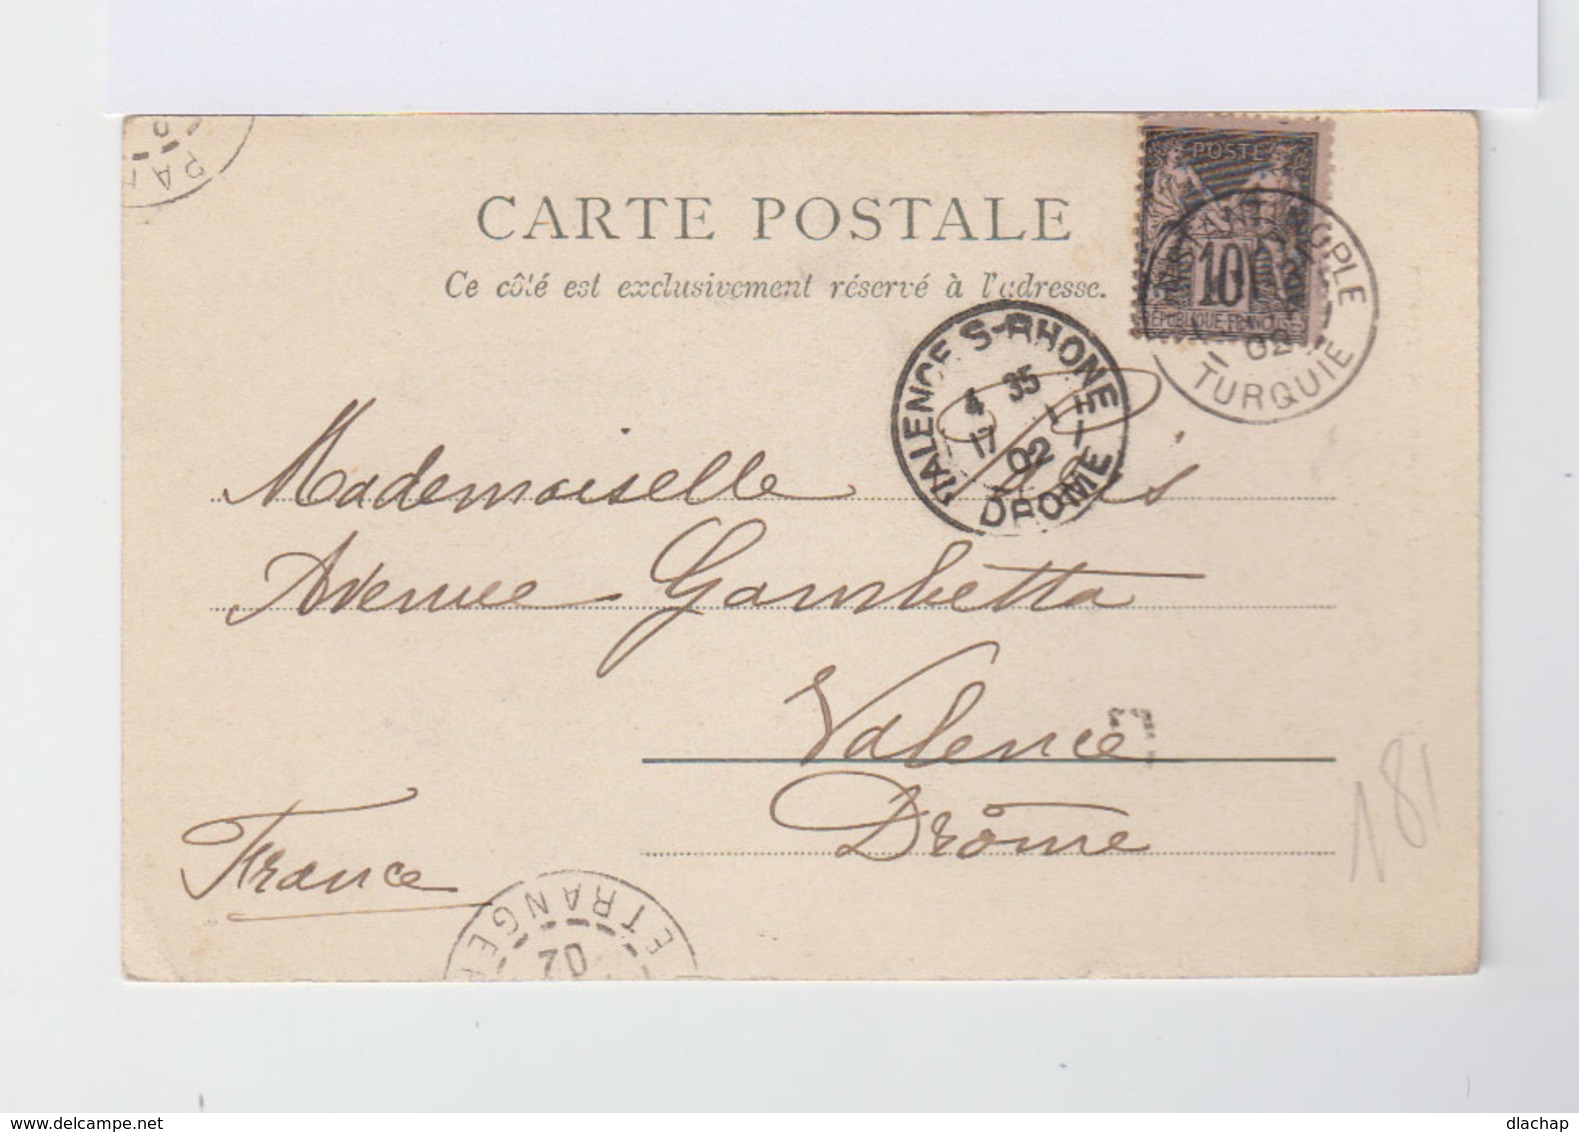 CARTE POSTALE
Ce côté est exclusivement réservé à l'adresse.
POSTE
10
RÉPUBLIQUE FRANÇAISE
02
TURQUIE
VALENCE S-RHONE
4 35
17 1
02
DROME
Mademoiselle
Avenue Gambetta
Valence
Drôme
France
ETRANGER
02
181
www.delcampe.net
dlachap